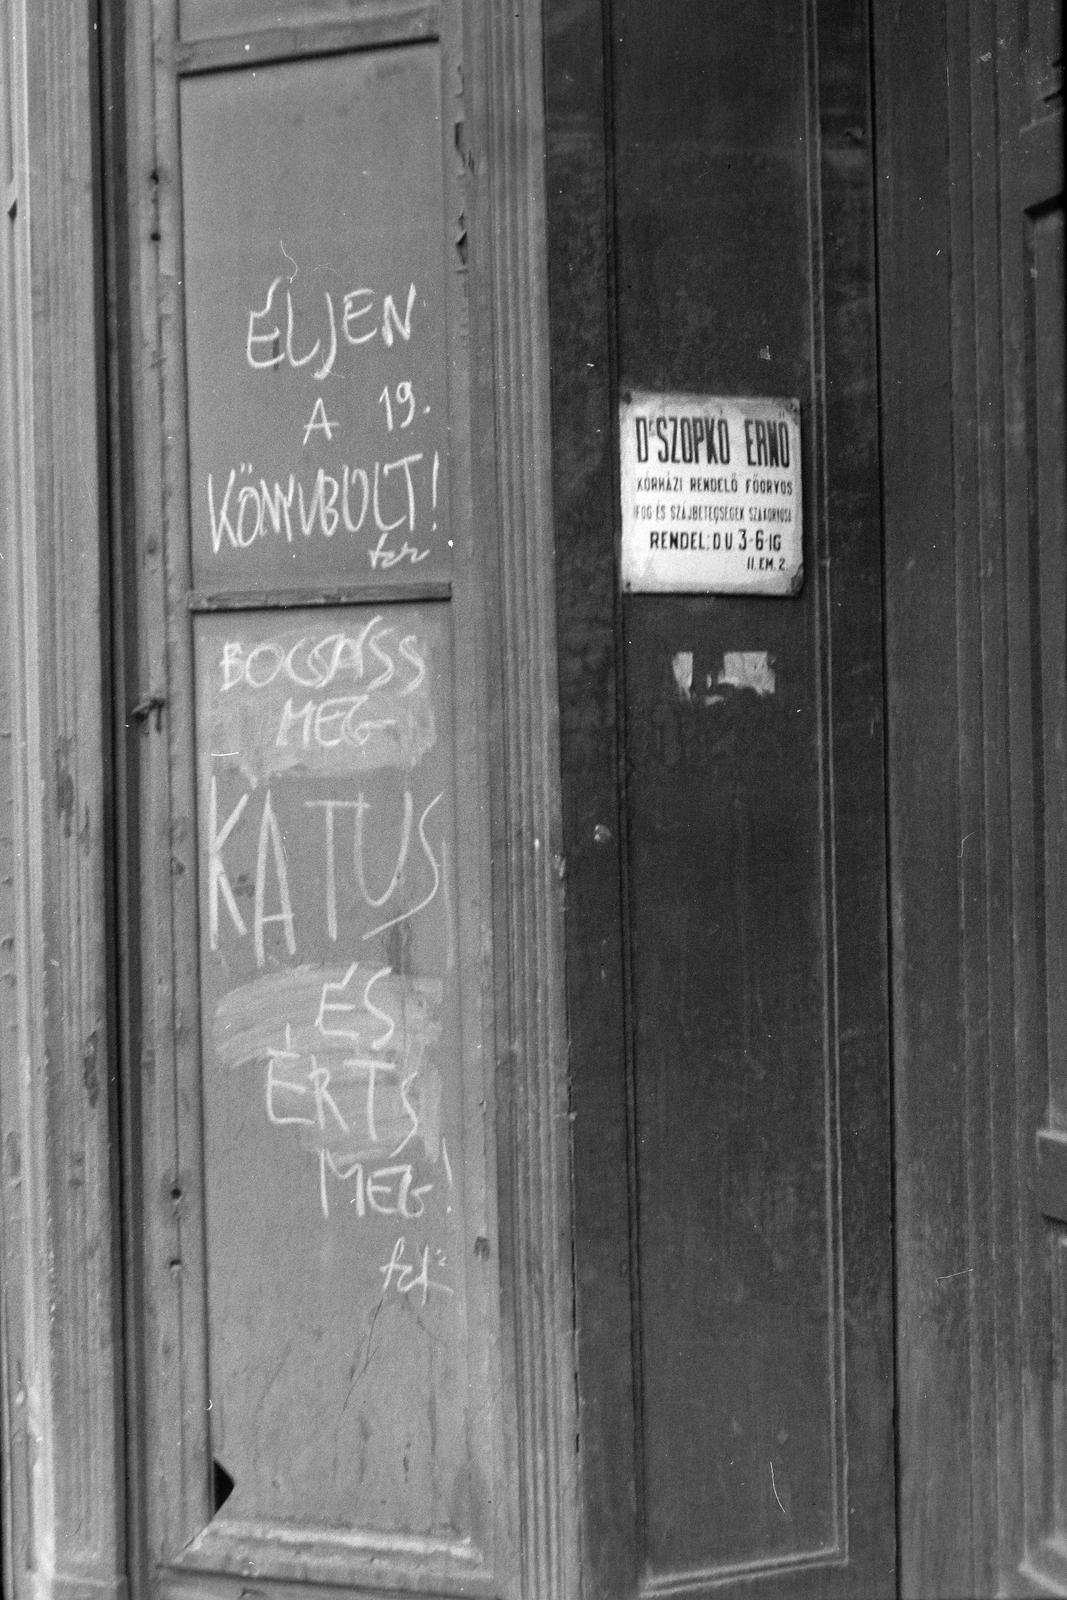 ÉLJEN
A 19.
KÖNYVBOLT!
BOCSÁSS
MEG
KATUS
ÉS
ÉRTS
MEG!
Dr SZOPKÓ ERNŐ
KÓRHÁZI RENDELŐ FŐORVOS
FOG ÉS SZÁJBETEGSÉGEK SZAKORVOSA
RENDEL: D.U. 3-6-IG
II. EM. 2.